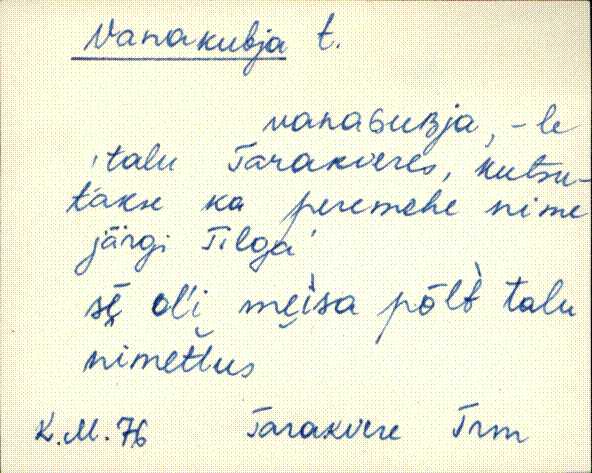 Vanakubja t.
vanaGuBja, -le
'talu Tarakveres, kutsu-
takse ka peremehe nime
järgi Tilga'
sē̮ ol'i mei̮sa põlìt talu
nimet̆t̆us
K.M. 76 Tarakvere Trm